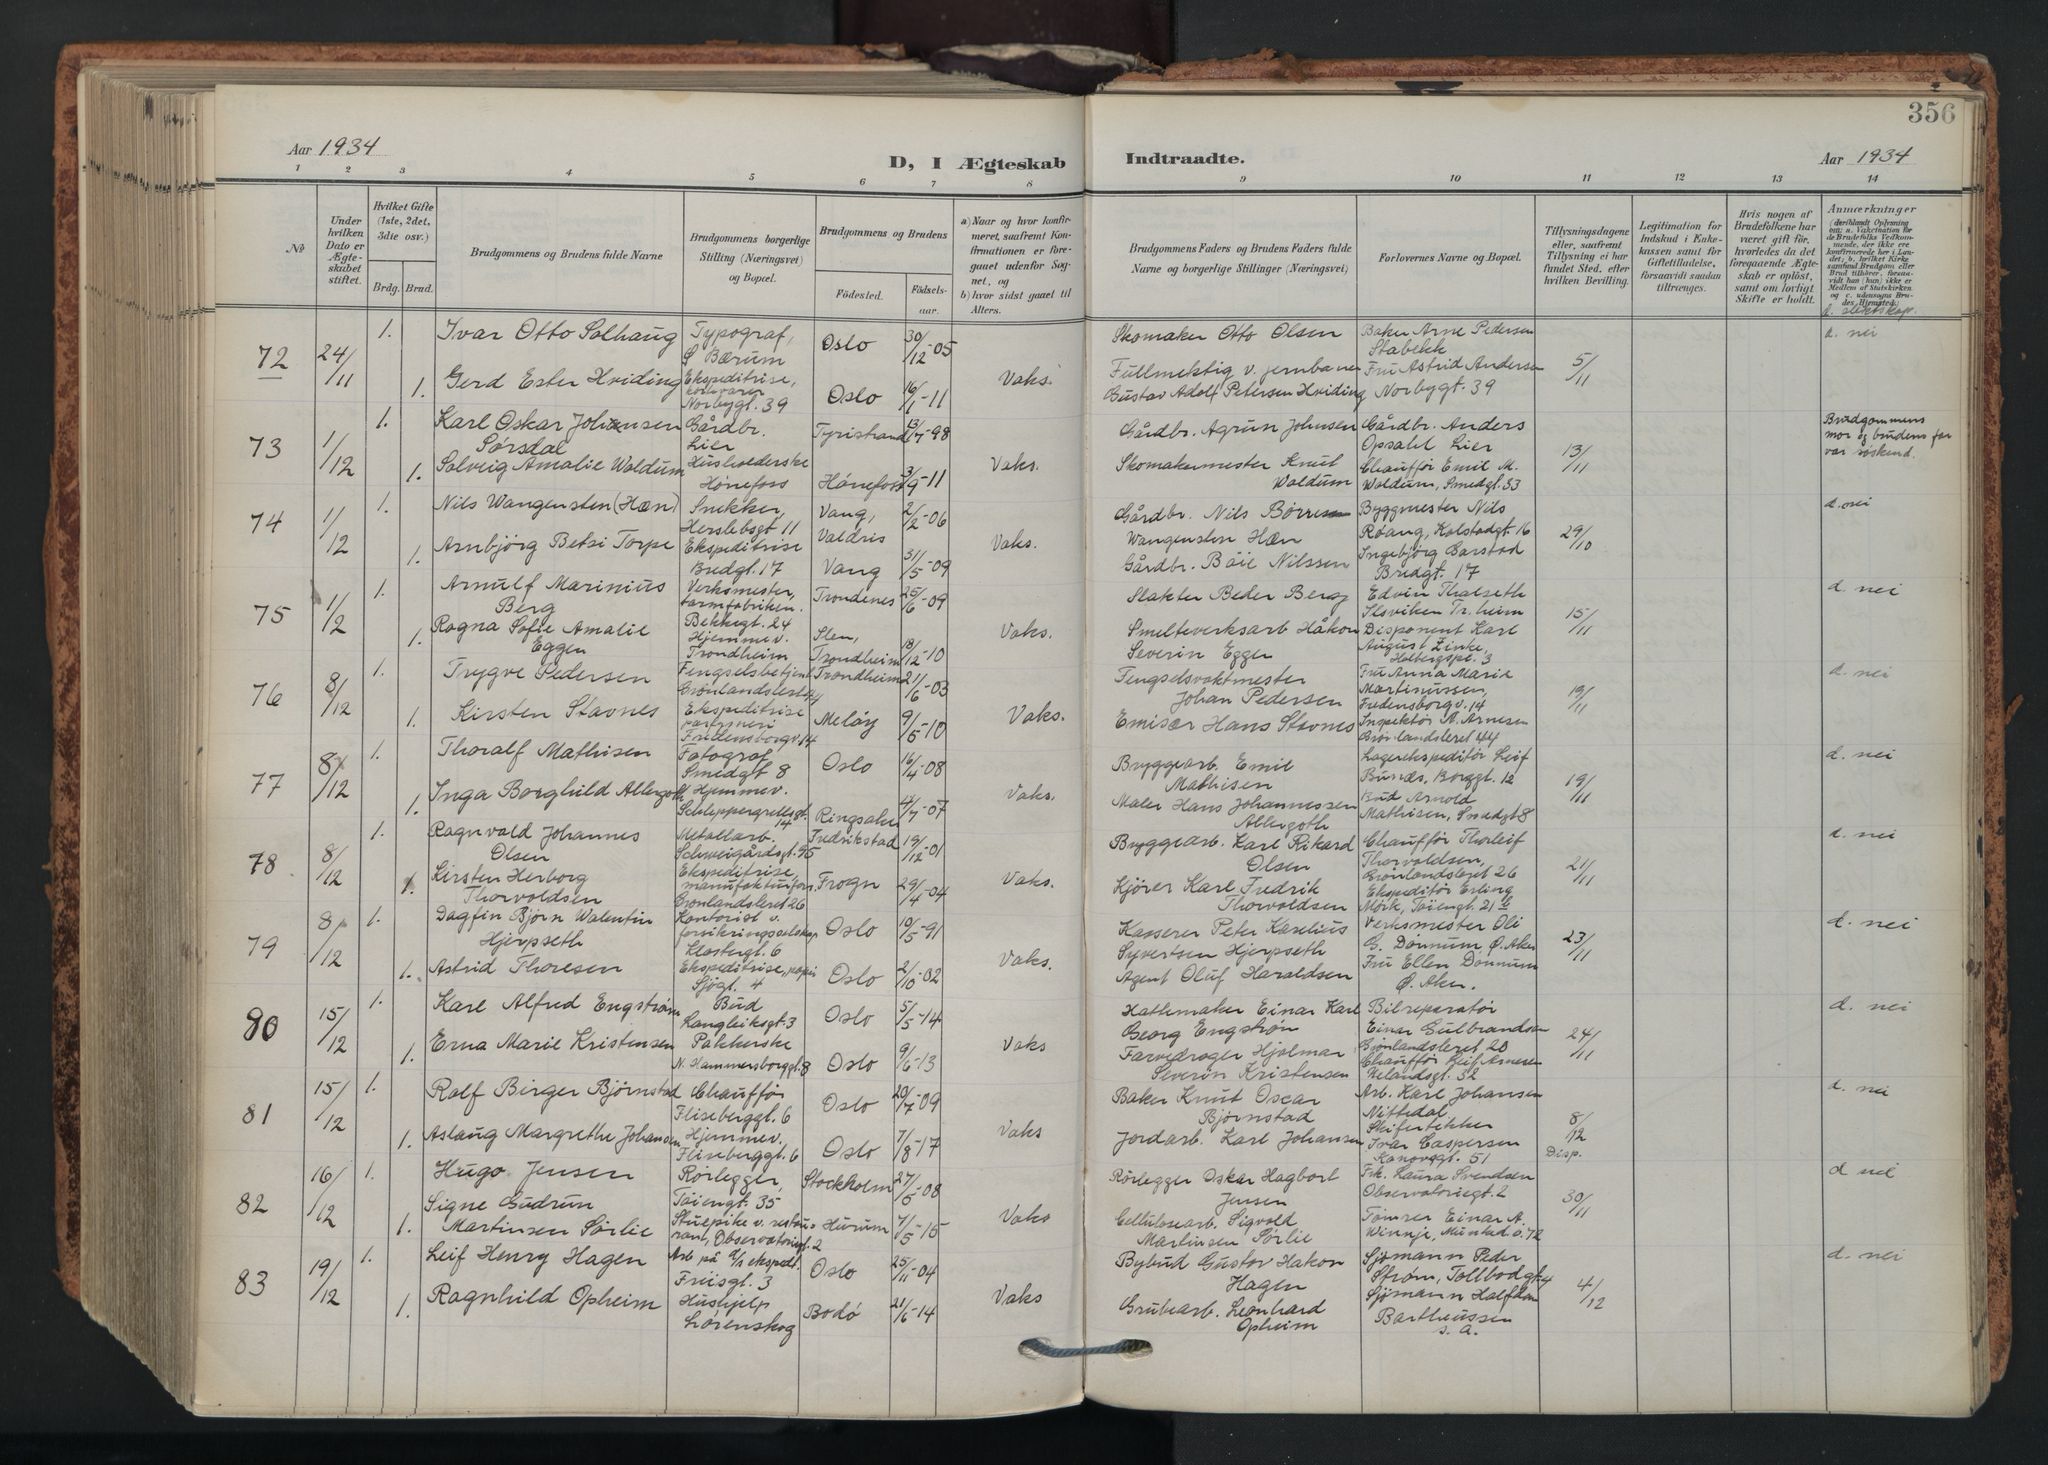 356
Aar 1934
D, I Ægteskab Indtraadte.
Aar 1934
1 2 3 4 5 6 7 8 9 10 11 12 13 14
№
Under hvilken Dato er Ægteskabet stiftet.
Hvilket Gifte (1ste, 2det, 3die osv.)
Brdg. Brud.
Brudgommens og Brudens fulde Navne
Brudgommens borgerlige Stilling (Næringsvei) og Bopæl.
Brudgommens og Brudens
Födested. Födselsaar.
a) Naar og hvor konfirmeret, saafremt Konfirmationen er foregaaet udenfor Sognet, og
b) hvor sidst gaaet til Alters.
Brudgommens Faders og Brudens Faders fulde Navne og borgerlige Stillinger (Næringsvei)
Forlovernes Navne og Bopæl.
Tillysningsdagene eller, saafremt Tillysning ei har fundet Sted, efter hvilken Bevilling.
Legitimation for Indskud i Enkekassen samt for Giftetilladelse, forsaavidt saadan tiltrænges.
Hvis nogen af Brudefolkene har været gift för, hvorledes da det foregaaende Ægteskab er oplöst, samt om lovligt Skifte er holdt.
Anmærkninger
(deriblandt Oplysning om: a. Vaccination for de Brudefolks Vedkommende, der ikke ere konfirmerede her i Landet; b. hvilket Kirkesamfund Brudgom eller Brud tilhörer, forsaavidt han (hun) ikke er Medlem af Statskirken og c. udensogns Brudes Hjemsted;
d. slektskap.
72 24/11 1. Ivar Otto Solhaug Typograf, S Bærum Oslo 30/12-05 Skomaker Otto Olsen Baker Arne Pedersen Stabekk d. nei
1. Gerd Ester Hviding Ekspeditrise, Norbygt. 39 Oslo 16/1-11 Vaks. Fullmektig v. jernbanen Gustav Adolf Petersen Hviding Fru Astrid Andersen Norbygt. 39 5/11
73 1/12 1. Karl Oskar Johansen Sørsdal Gårdbr. Lier Tyristrand 13/7-98 Gårdbr. Agrun Johnsen Gårdbr. Anders Opsahl Lier 13/11 Brudgommens mor og brudens far var søskend.
1. Solveig Amalie Waldum Husholderske Hønefoss Hønefoss 3/9-11 Vaks. Skomakermester Knut Waldum Chauffør Emil M. Waldum, Smedgt. 33
74 1/12 1. Nils Wangensten (Hæn) Snekker, Herslebsgt 11 Vang, Valdris 2/2-06 Gårdbr. Nils Børresen Wangensten Hæn Byggmester Nils Røang, Kolstadgt. 16 29/10 d. nei
1. Arnbjörg Betsi Torpe Ekspeditrise Bredgt. 17 Vang 31/5-09 Vaks. Gårdbr. Bóie Nilssen Ingebjörg Carstad Bredgt. 17
75 1/2 1. Arnulf Marinius Berg Verksmester, tarmfabriken. Bekkegt. 24 Trondenes 25/6-09 Slakter Peder Berg Edvin Thalseth Ilsviken Tr.heim 15/11 d. nei
1. Ragna Sofie Amalie Eggen Hjemmev. Trondheim Trondheim 18/12-10 Vaks. Smelteverksarb Håkon Severin Eggen Disponent Karl August Zinke, Holbergspl. 3
76 8/12 1. Trygve Pedersen Fengselsbetjent Grønlandsleret 44 Trondheim 21/6-03 Fengselsvaktmester Johan Pedersen Fru Anna Marie Martinussen, Fredensborgv. 14 19/11 d. nei
1. Kirsten Stavnes Ekspeditrise parfymeri Fredensborgv. 14 Meløy 9/5-10 Vaks. Emisær Hans Stavnes Inspektør A. Arnesen Grønlandsleret 44
77 8/12 1. Thoralf Mathisen Fotograf Smedgt 8 Oslo 16/4-08 Bryggearb. Emil Mathisen Lagerekspeditør Leif Bunæs, Borggt. 12 19/11 d. nei
1. Inga Borghild Allergoth Hjemmev. Schleppegrellsgt. 14 Ringsaker 4/7-07 Vaks. Maler Hans Johannessen Allergoth Bud Arnold Mathisen, Smedgt 8
78 8/12 1. Ragnvald Johannes Olsen Metallarb. Schweigårdsgt. 95 Fredrikstad 19/12-01 Bryggearb. Karl Rikard Olsen Chauffør Thorleif Thorvaldsen, Grønlandsleret 26 21/11 d. nei
1. Kirsten Herborg Thorvaldsen Ekspeditrise, manufakturforr. Grønlandsleret 26 Frogn 29/4-04 Vaks. Kjører Karl Fredrik Thorvaldsen Ekspeditør Erling Mörk, Töiengt. 21 b
79 8/12 1. Dagfin Bjørn Walentin Hjerpseth Kontorist v. forsikringsselskap Klostergt. 6 Oslo 10/5-91 Kasserer Peter Karelius Syvertsen Hjerpseth Verksmester Oli G. Dønnum Ø. Aker 23/11 d. nei
1. Astrid Thoresen Ekspeditrise, papir Sjøgt. 4 Oslo 2/10-02 Vaks. Agent Oluf Haraldsen Fru Ellen Dønnum Ø. Aker.
80 15/12 1. Karl Alfred Engstrøm Bud Langleiksgt. 3 Oslo 5/5-14 Hattemaker Einar Karl Georg Engstrøn Bilreparatør Einar Gulbrandsen Grønlandsleret 20 24/11 d. nei
1. Erna Marie Kristensen Pakkerske N. Hammersborggt. 8 Oslo 9/6-13 Vaks Farvedroger Hjalmar Severin Kristensen Chauffør Leif Arnesen Welandsgt. 32
81 15/12 1. Rolf Birger Bjørnstad Chauffør Fliseberggt. 6 Oslo 20/7-09 Baker Knut Oscar Bjørnstad Arb. Karl Johansen Nittedal 8/12 Disp. d. nei
1. Aslaug Margrethe Johansen Hjemmev. Fliseberggt. 6 Oslo 7/8-17 Vaks Jordarb. Karl Johansen Skifertekker Ivar Caspersen Kanovegt. 51
82 16/12 1. Hugo Jensen Rørlegger, Töiengt. 35 Stockholm 27/5-08 Rørlegger Oskar Hagbart Jensen Frk. Laura Svendsen Observatoriegt. 2 30/11 d nei
1. Signe Gudrun Martinsen Sørlie Stuepike v. restaurant, Observatoriegt. 2 Hurum 7/5-15 Vaks Cellulosearb. Sigvald Martinsen Sørlie Tømrer Einar A. Winnje, Munked.v. 72
83 19/12 1. Leif Henry Hagen Arb på A/S ekspedt. Friisgt. 3 Oslo 25/11-04 Bybud Gustav Hakon Hagen Sjømann Peder Strøm, Tollbodgt. 4 4/12 d. nei
1. Ragnhild Opheim Hushjelp Lørenskog Bodø 21/6-14 Vaks Grubearb. Leonhard Opheim Sjømann Halfdan Bartheussen s. a.